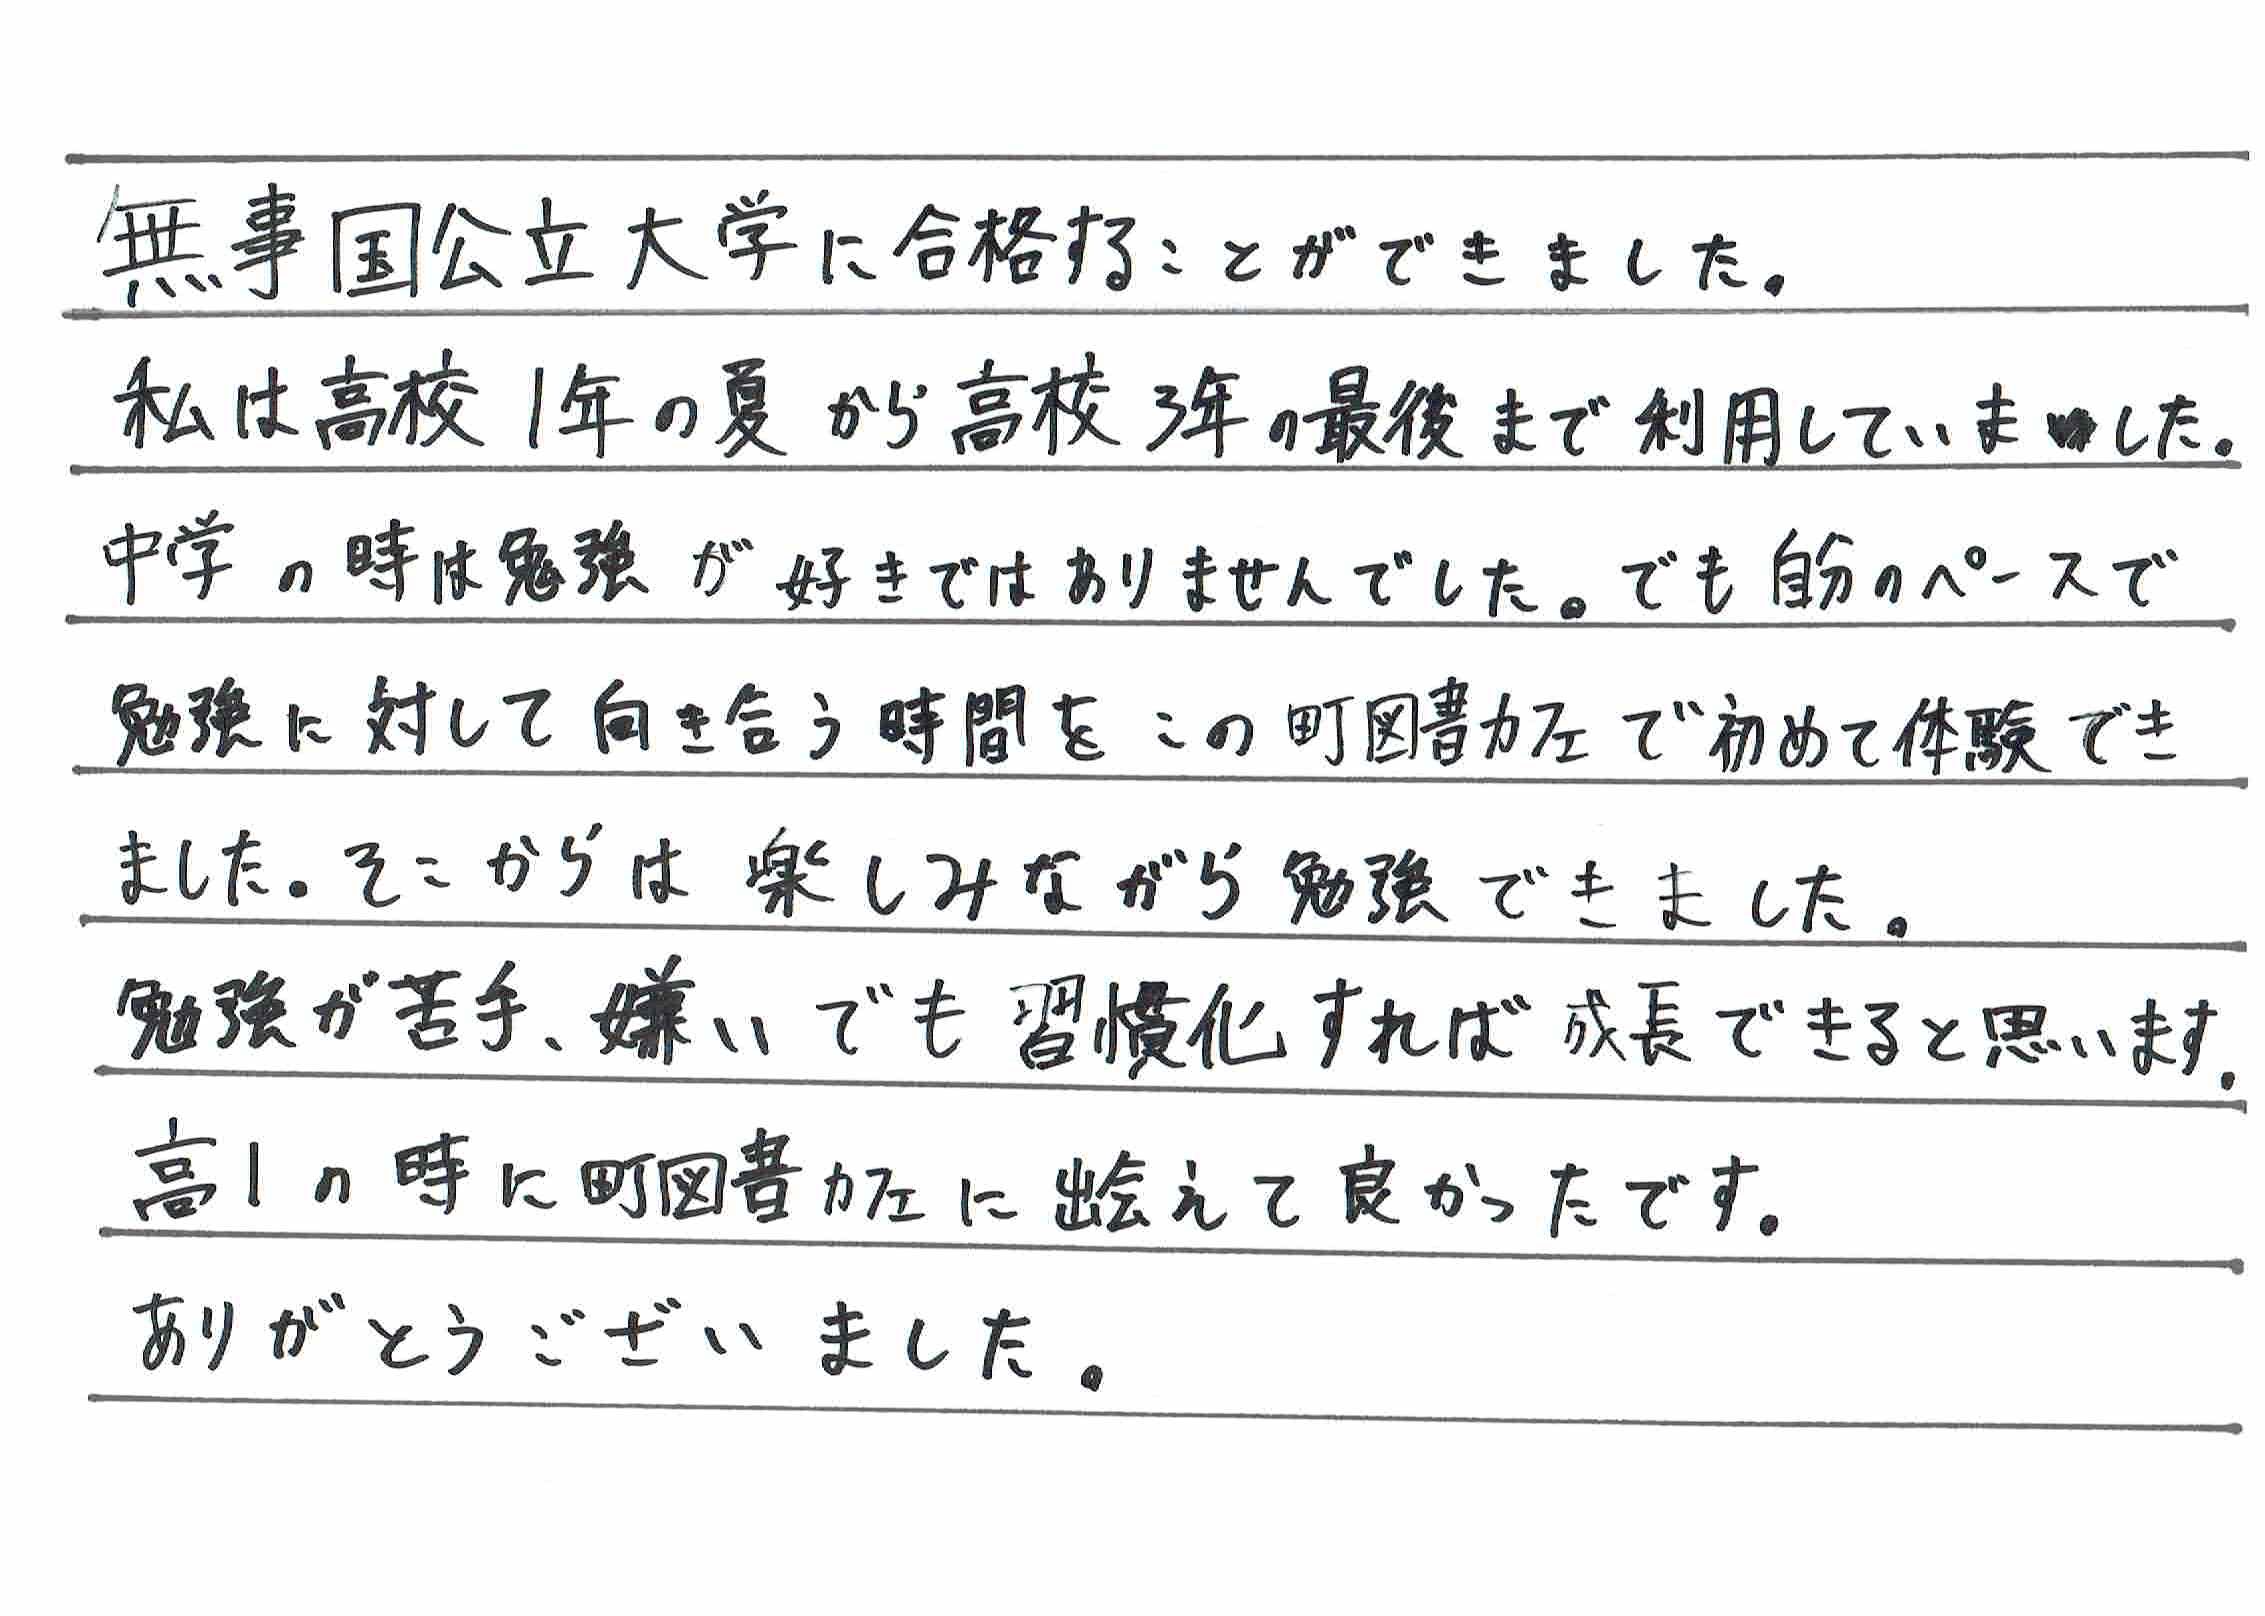 無事国公立大学に合格することができました。
私は高校1年の夏から高校3年の最後まで利用していました。
中学の時は勉強が好きではありませんでした。でも自分のペースで
勉強に対して向き合う時間をこの町図書カフェで初めて体験でき
ました。そこからは楽しみながら勉強できました。
勉強が苦手、嫌いでも習慣化すれば成長できると思います。
高1の時に町図書カフェに出会えて良かったです。
ありがとうございました。